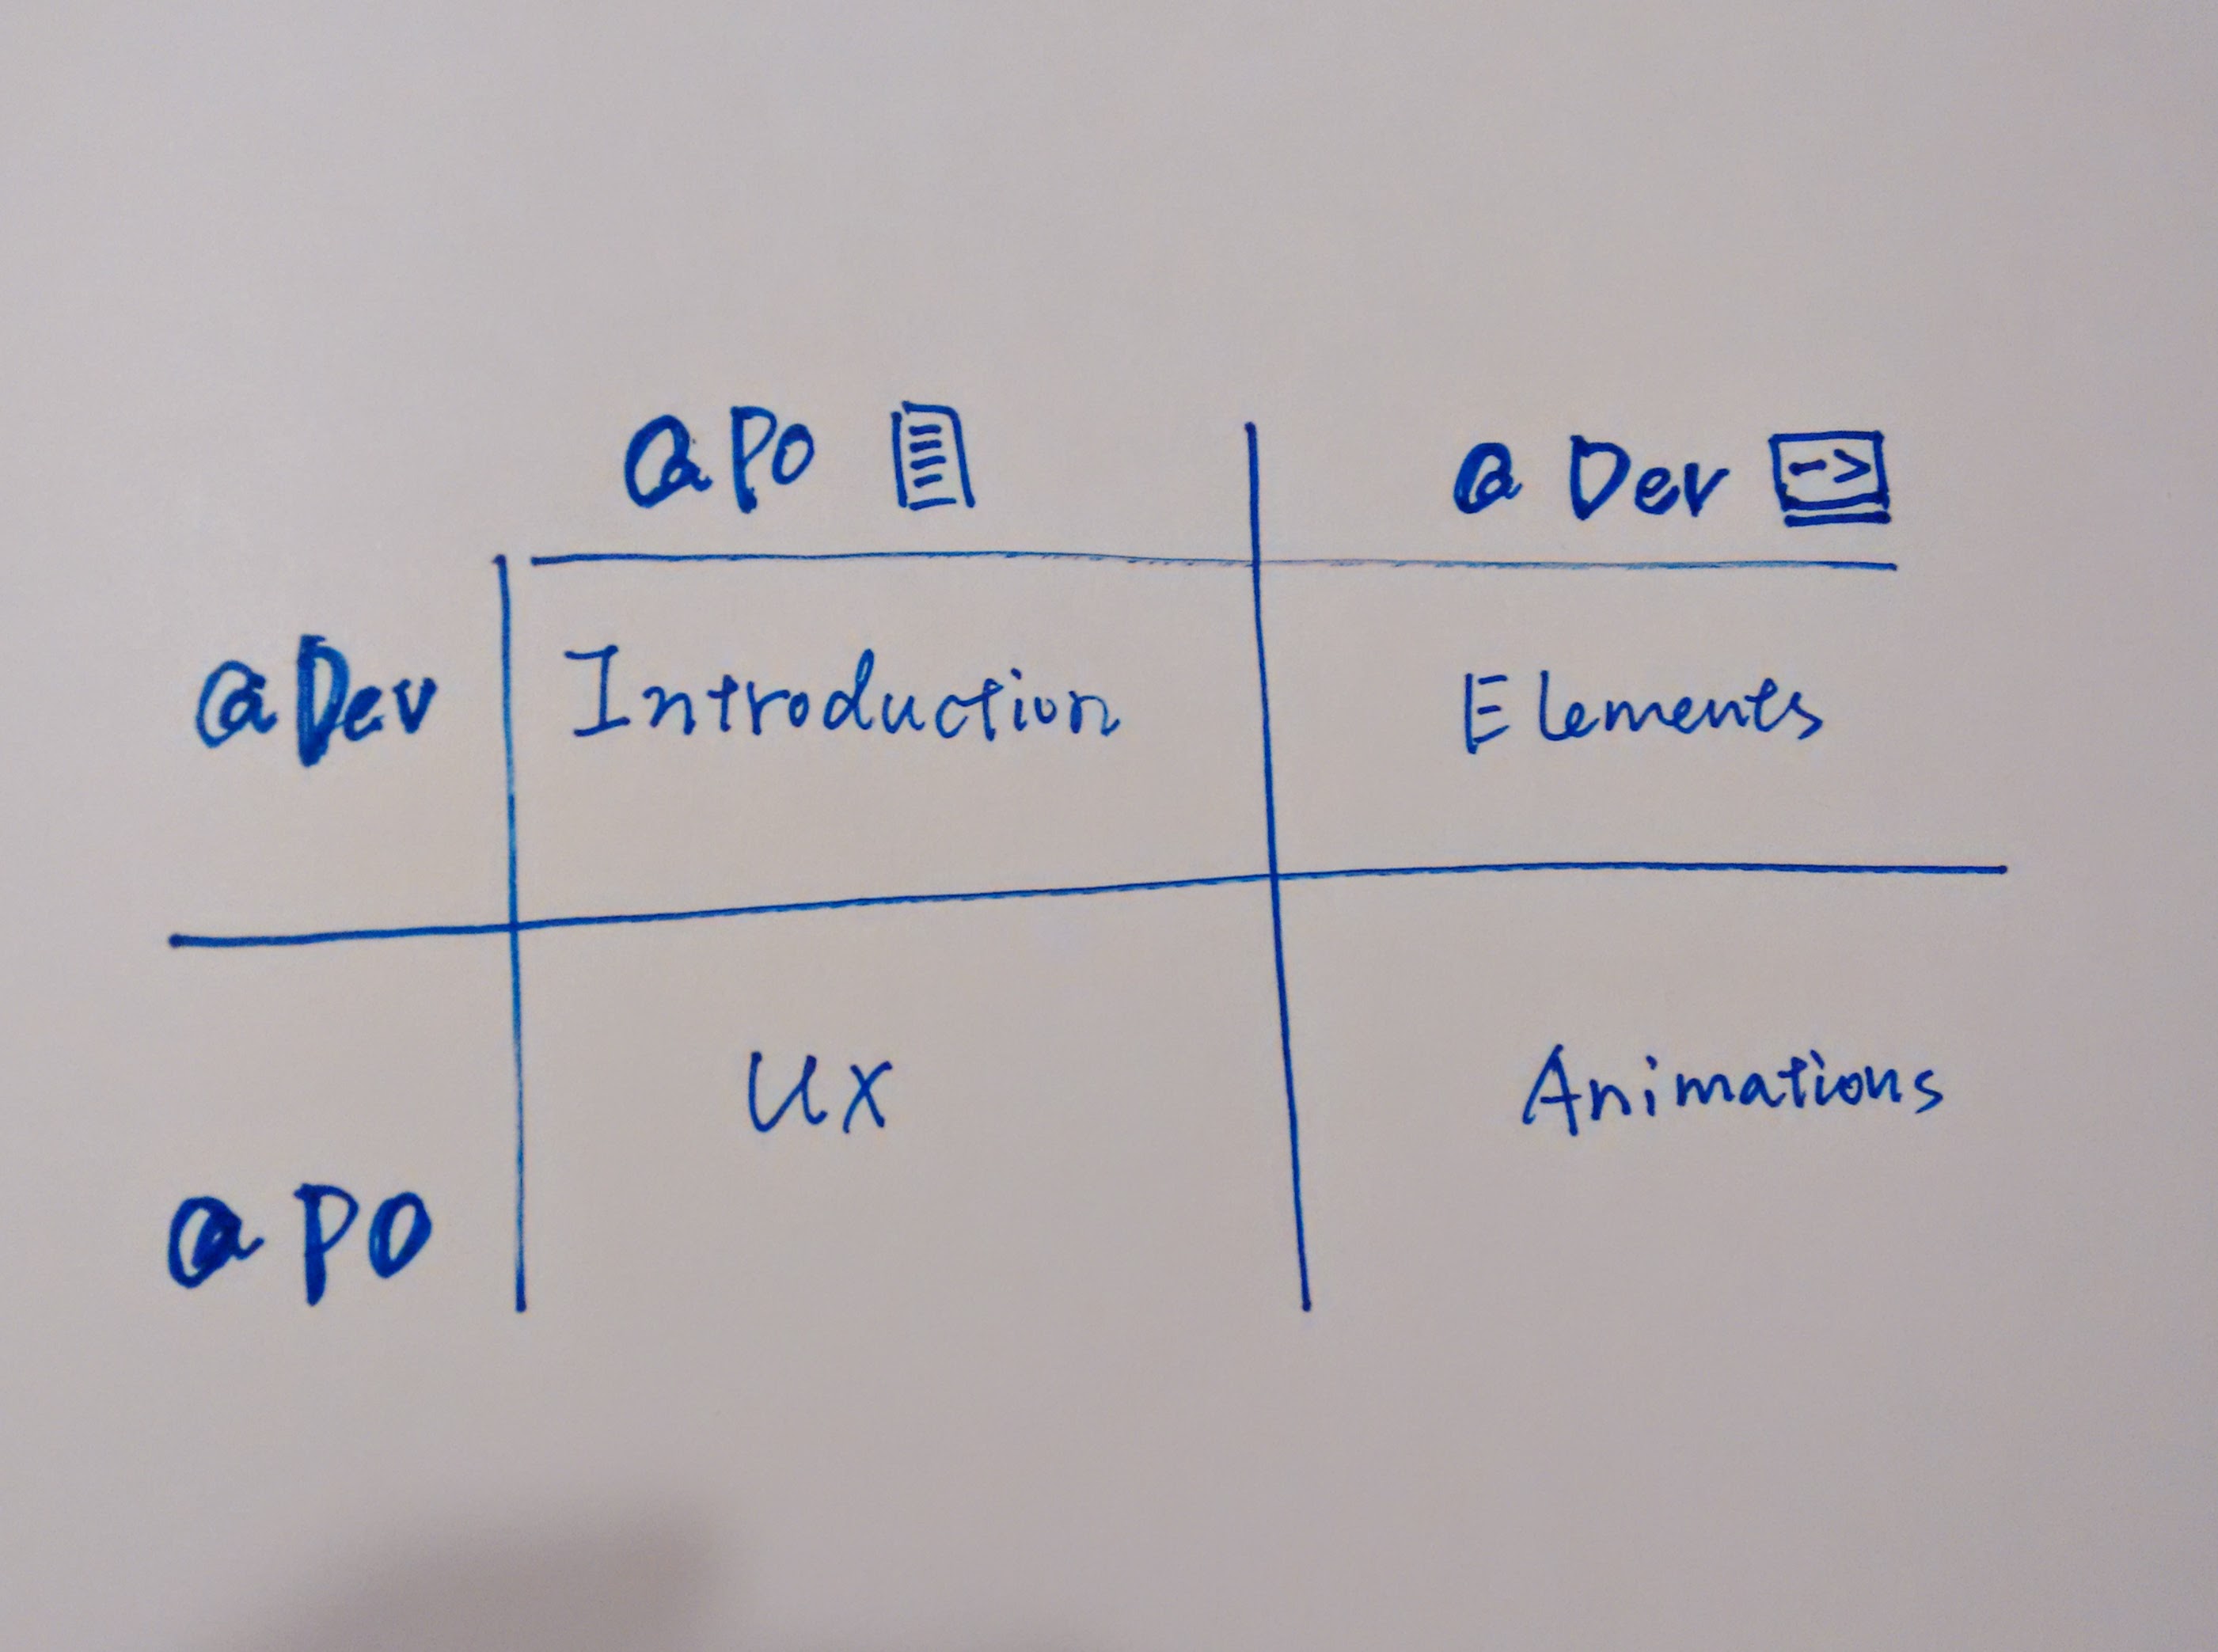 @PO
@ Dev ->
@Dev
Introduction
Elements
UX
Animations
@ PO